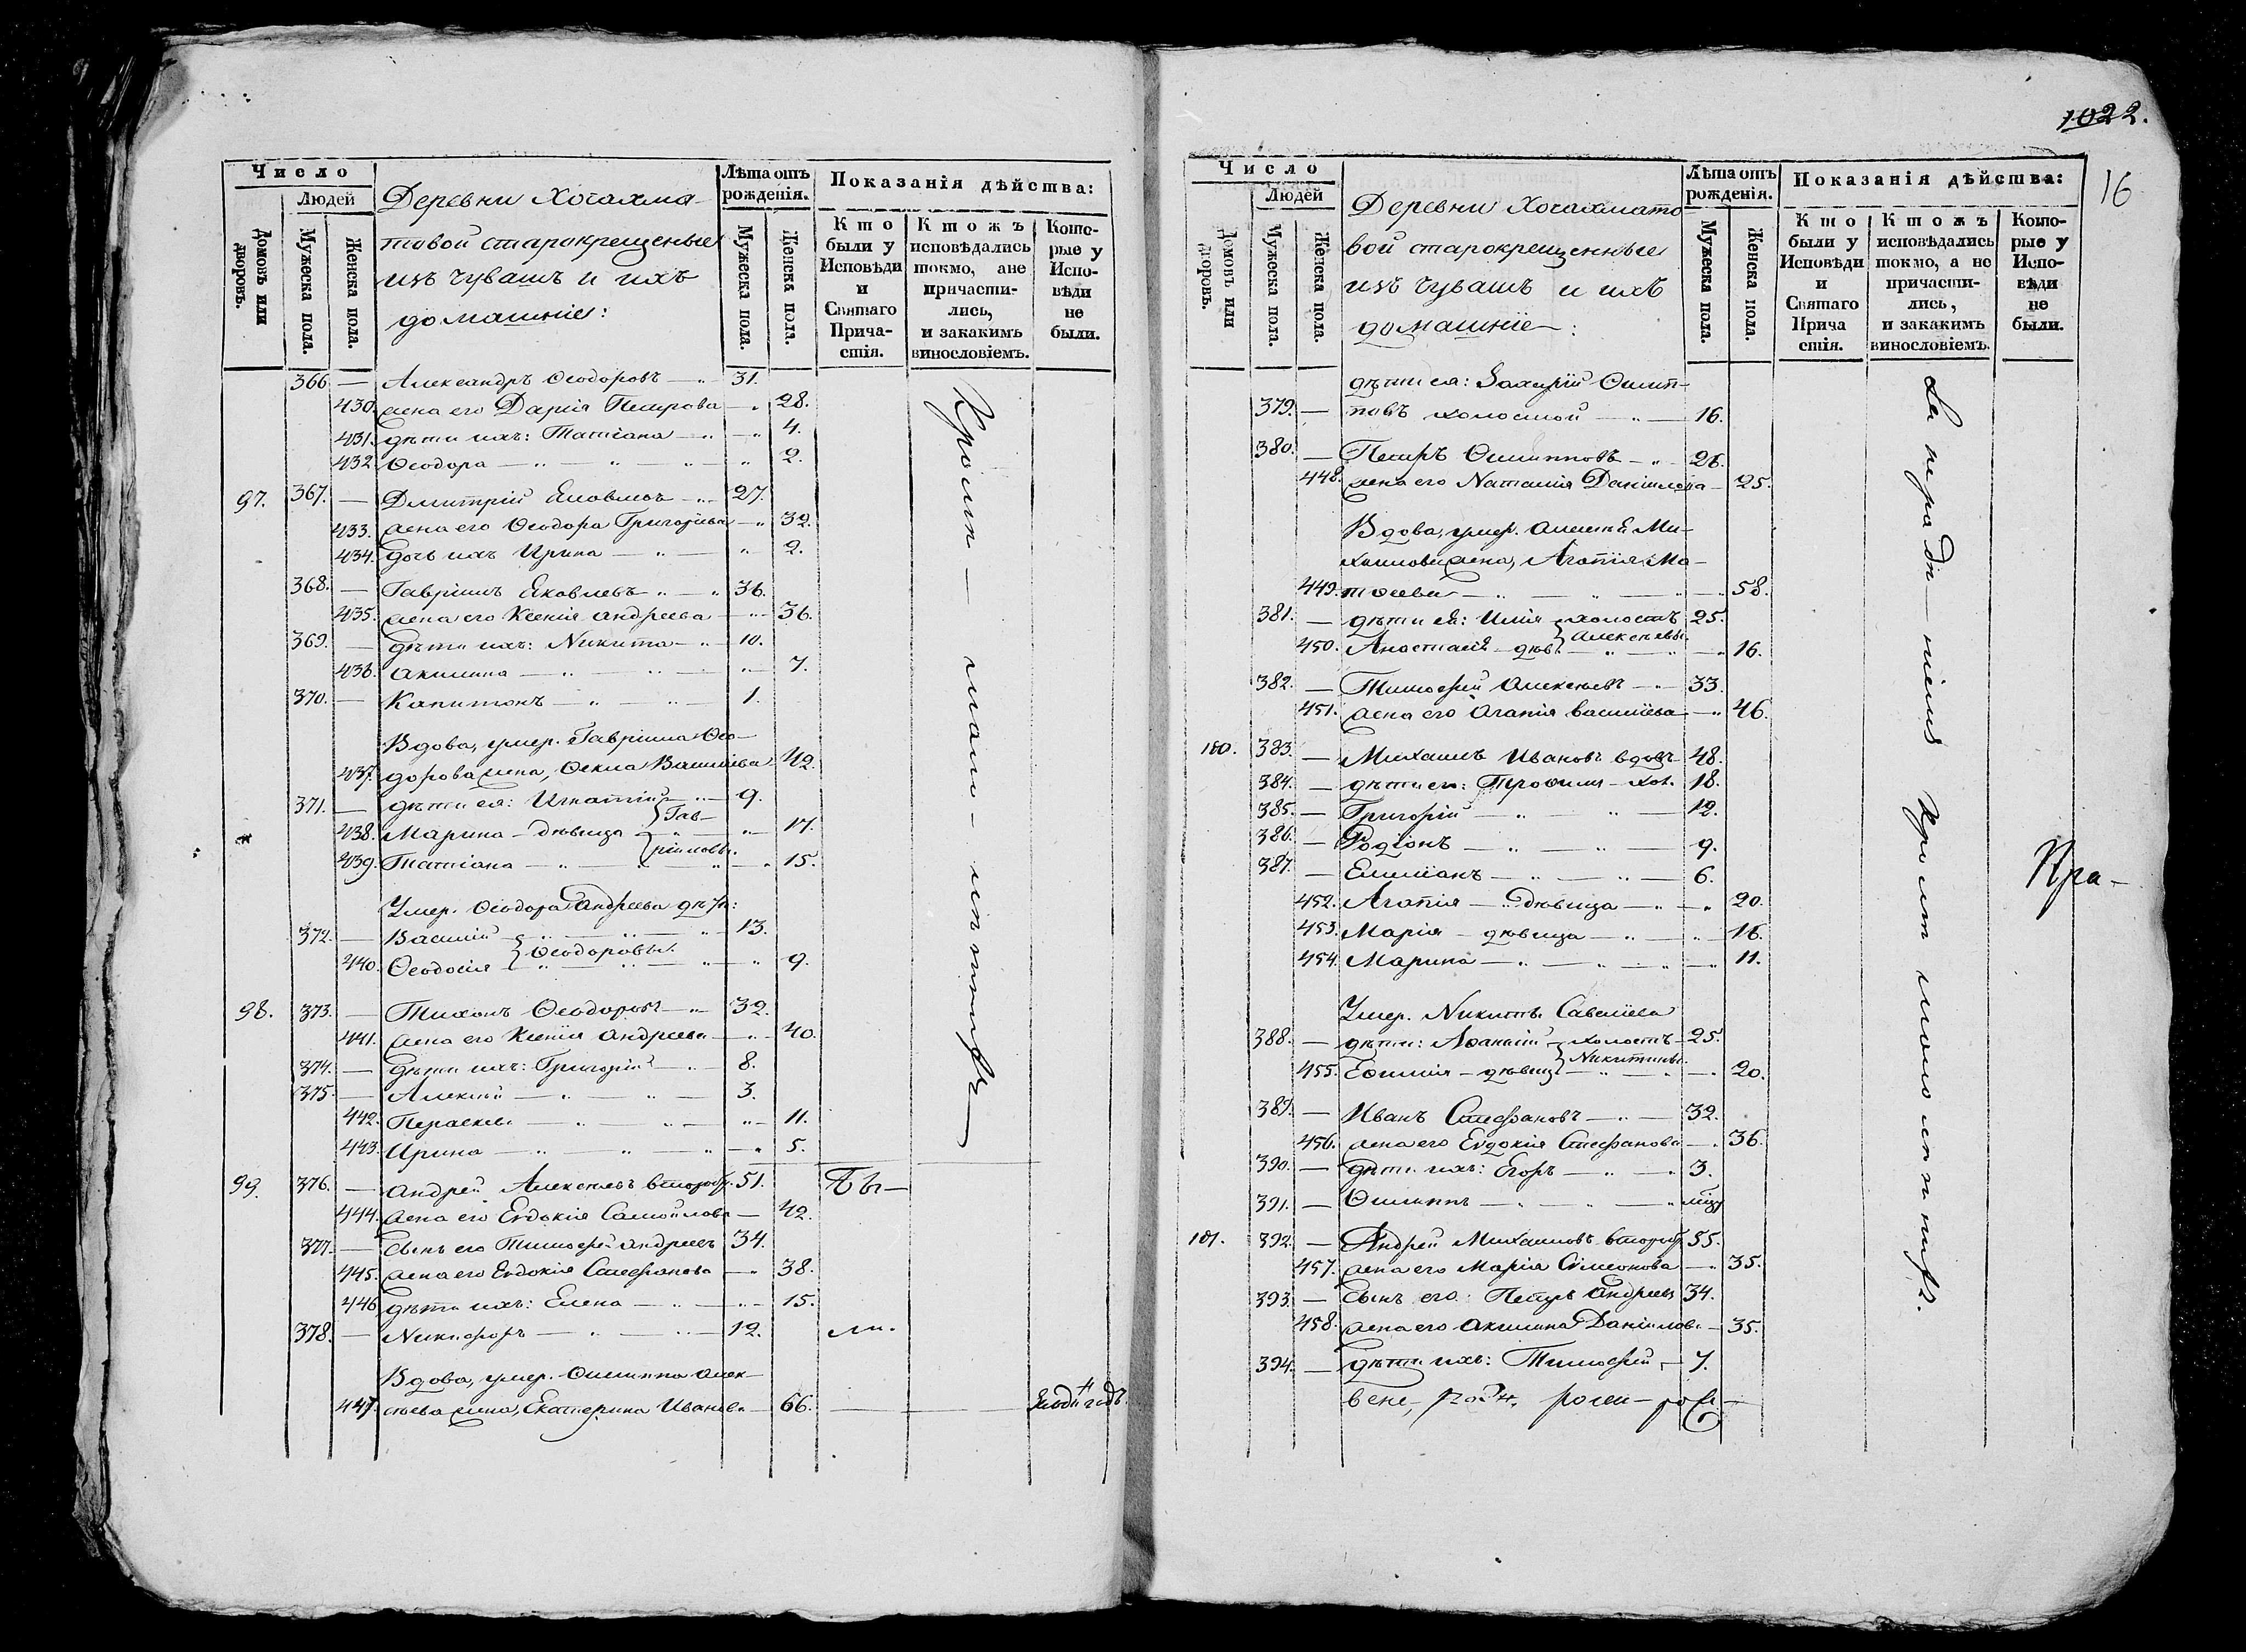 1022.
16
Число
Людей
Домовъ или дворовъ.
Мужеска пола.
Женска пола.
Деревни Хочахма-
товой старокрещеные
изъ чувашъ и ихъ
домашніе:
Лѣта отъ рожденія.
Мужеска пола.
Женска пола.
Показанія дѣйства:
Кто были у Исповѣди и Святаго Прича-стія.
Ктожъ исповѣдались токмо, ане причасти-лись, и закакимъ винословіемъ.
Кото-рые у Испо-вѣди не были.
366. — Александръ Ѳеодоровъ — 31.
430. жена его Дарія Петрова — 28.
431. дѣти ихъ: Татіана — 4.
432. Ѳеодора — 2.
97. 367. — Дмитрій Яковлевъ — 27.
433. жена его Ѳеодора Григорьева — 32.
434. дочь ихъ Ирина — 2.
368. — Гавріилъ Яковлевъ — 36.
435. жена его Ксенія Андреева — 36.
369. — дѣти ихъ: Никита — 10.
436. Акилина — 7.
370. — Капитонъ — 1.
Вдова, умер. Гавріила Ѳео-
437. дорова жена, Ѳекла Васильева 42.
371. — дѣти ея: Игнатій — 9.
Гав-
438. Марина - дѣвица — 17.
ріиловы.
439. Татіана — 15.
Умер. Ѳеодора Андреева дѣти:
372. — Василій — 13.
Ѳеодоровы.
440. Ѳеодосія — 9.
98. 373. — Тихонъ Ѳеодоровъ — 32.
441. жена его Ксенія Андреева — 40.
374. — дѣти ихъ: Григорій — 8.
375. — Алексій — 3.
442. Параскева — 11.
443. Ирина — 5.
99. 376. — Андрей Алексѣевъ второбр. 51. Бы-
444. жена его Евдокія Самойлова — 42.
377. — сынъ его Тимоѳей Андреевъ 34.
445. жена его Евдокія Стефанова — 38.
446. дѣти ихъ: Елена — 15.
378. — Никифоръ — 12. ли.
Вдова, умер. Филиппа Алек-
447. сѣева жена, Екатерина Иванова — 66. —
Число
Людей
Домовъ или дворовъ.
Мужеска пола.
Женска пола.
Деревни Хочахмато-
вой старокрещенные
изъ чувашъ и ихъ
домашніе:
Лѣта отъ рожденія.
Мужеска пола.
Женска пола.
Показанія дѣйства:
Кто были у Исповѣди и Святаго Прича стія.
Ктожъ исповѣдались токмо, а не причасти-лись, и закакимъ винословіемъ.
Кото-рые у Испо-вѣди не были.
дѣти ея: Захарій Филип-
379. — повъ холостой — 16.
380. — Петръ Филипповъ — 26.
448. жена его Наталія Даніилова — 25.
Вдова, умер. Алексѣя Ми-
хаилова жена, Агапія Ма-
449. тѳеева — 58.
381. — дѣти ея: Илія - холостъ 25.
Алексѣевы.
450. Анастасія - дѣв. — 16.
382. — Тимоѳей Алексѣевъ — 33.
451. жена его Агапія Васильева — 46.
100. 383. — Михаилъ Ивановъ вдовъ 48.
384. — дѣти его: Трофимъ - хол. 18.
385. — Григорій — 12.
386. — Родіонъ — 9.
387. — Емиліанъ — 6.
452. Агапія — дѣвица — 20.
453. Марія — дѣвица — 16.
454. Марина — 11.
Умер. Никиты Савельева
388. — дѣти: Аѳанасій - холостъ 25.
Никитины.
455. Ефимія - дѣвица — 20.
389. — Иванъ Стефановъ — 32.
456. жена его Евдокія Стефанова — 36.
390. — дѣти ихъ: Егоръ — 3.
391. — Филиппъ —
101. 392. — Андрей Михаиловъ второбр. 55.
457. жена его Марія Симеонова — 35.
393. — сынъ его Петръ Андреевъ 34.
458. жена его Акилина Даніилова — 35.
394. — дѣти ихъ: Тимоѳей — 7.
Пра-